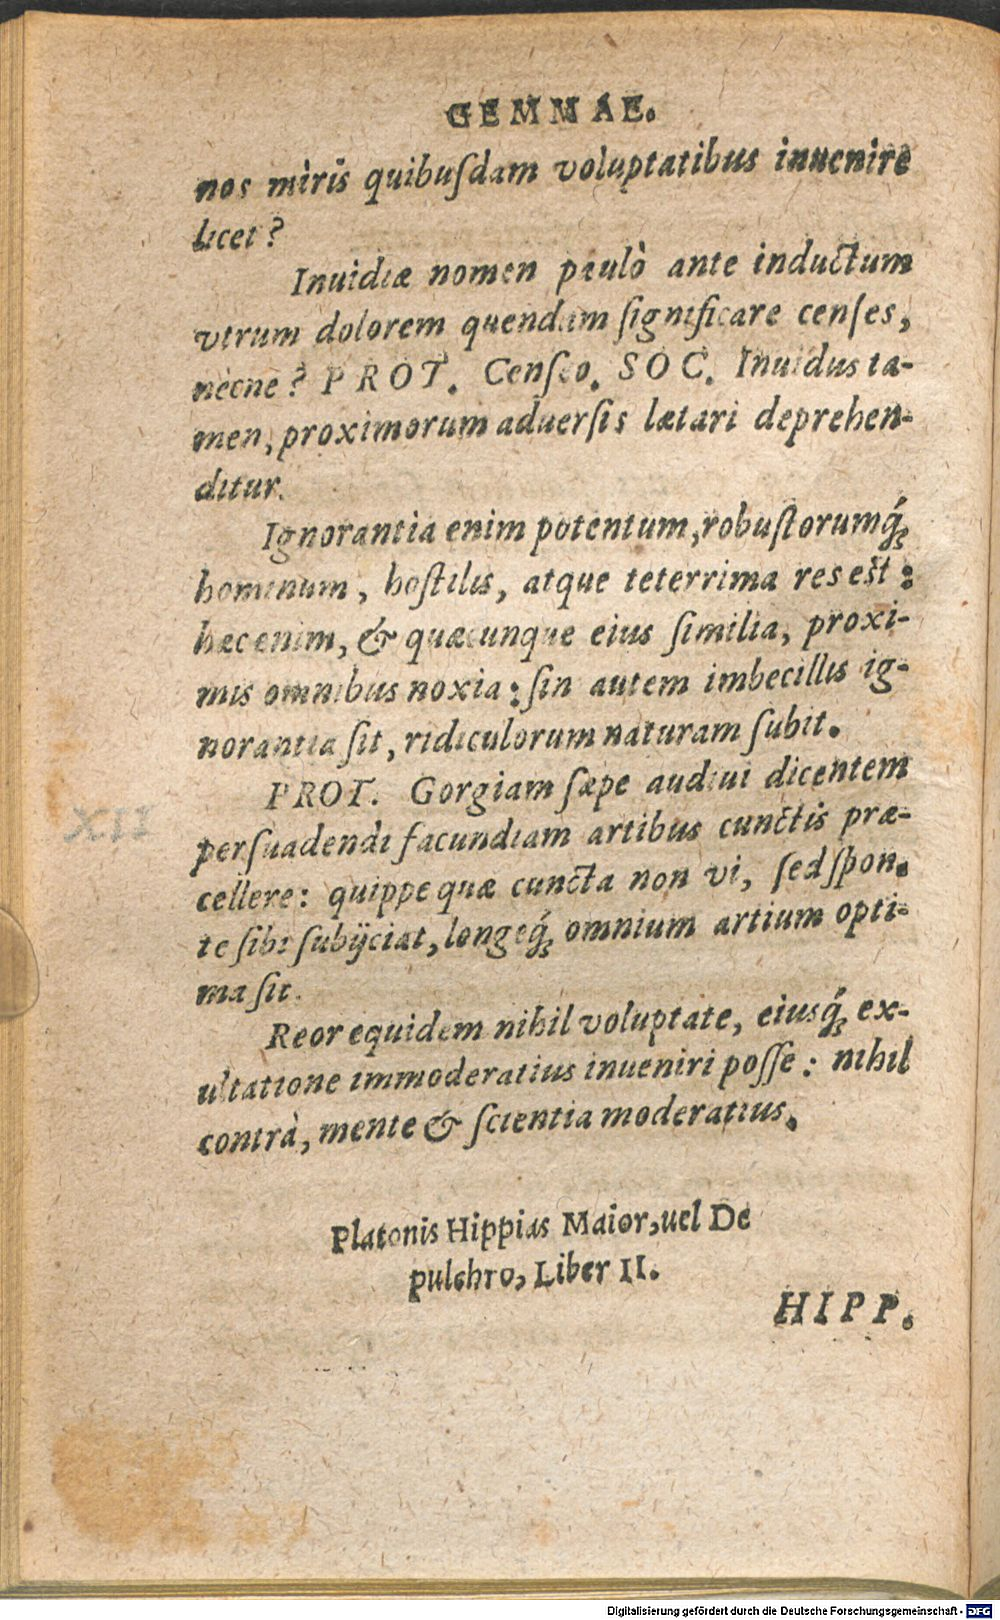 GEMMAE.
nos miris quibuſdam voluptatibus inuenire
licet?
Inuidiæ nomen paulò ante inductum
vtrum dolorem quendam ſignificare cenſes,
nécne? PROT. Cenſeo. SOC. Inuidus ta-
men, proximorum aduerſis lætari deprehen-
ditur.
Ignorantia enim potentum, robuſtorumq́ꝫ
hominum, hoſtilis, atque teterrima res est:
hæc enim, & quæcunque eius ſimilia, proxi-
mis omnibus noxia: ſin autem imbecillis ig-
norantia ſit, ridiculorum naturam ſubit.
PROT. Gorgiam ſæpe audiui dicentem
perſuadendi facundiam artibus cunctis præ-
cellere: quippe quæ cuncta non vi, ſed ſpon-
te ſibi ſubijciat, longeq́ꝫ omnium artium opti-
ma ſit.
XII
Reor equidem nihil voluptate, eiusq́ꝫ ex-
ultatione immoderatius inueniri poſſe: nihil
contrà, mente & ſcientia moderatius.
Platonis Hippias Maior, uel De
pulchro, Liber II.
HIPP.
Digitalisierung gefördert durch die Deutsche Forschungsgemeinschaft - DFG